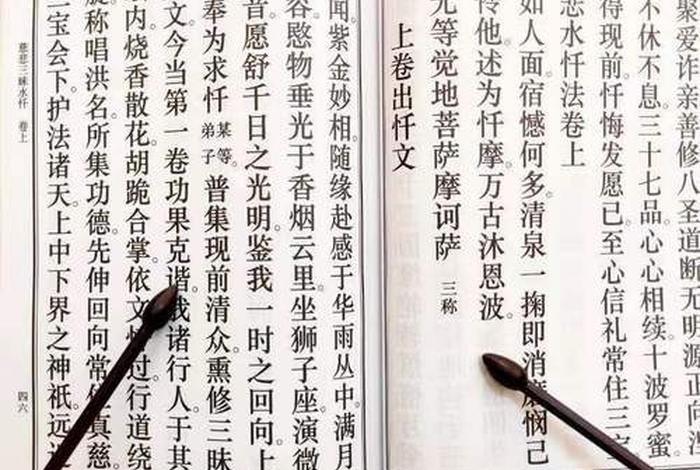 聚爱诈亲善修八圣道断无明源正向
不休不息。三十七品。心心相续十波罗蜜。
得现前。忏悔发愿已。至心信礼常住三宝
悲水忏法卷上
如人面。宿憾何多。清泉一掬即消魔悯己
怜他。述为忏摩。万古沐恩波。
无等觉地菩萨摩诃萨 三称
上卷出忏文
闻。紫金妙相。随缘赴感于华雨丛中。满月
容。愍物垂光于香烟云里。坐狮子座。演微
音。愿舒千日之光明。鉴我一时之回向。上
奉为求忏弟子某等。普集现前清众熏修三昧
文。今当第一卷功果克谐。我诸行人于其
内。烧香散花。胡跪合掌。依文 过。行道绕
旋。称唱洪名。所集功德。先伸回向常住真慈。
三宝会下。护法诸天。上中下界之神祇。远近
慈悲三昧水忏 卷上
四六